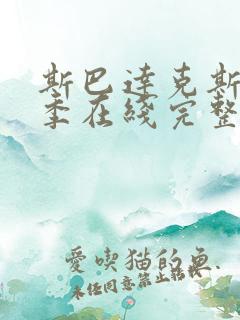 斯巴達克斯
季在綫完整
愛喫猫的魚.
未经同意禁止转载